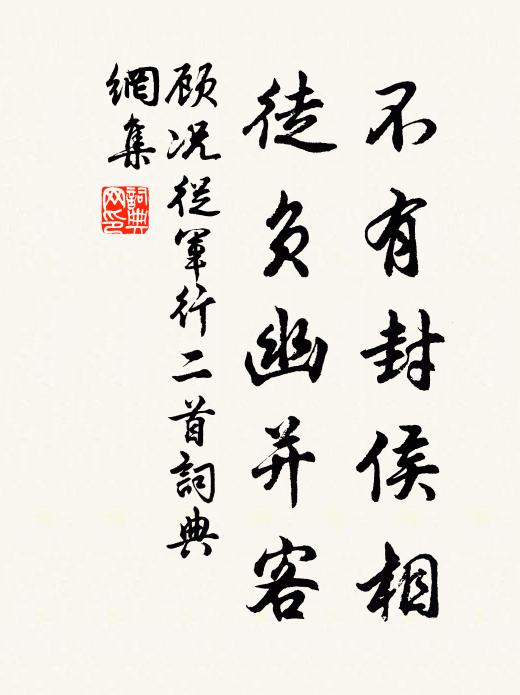 不有封侯相
徒负幽并客
顾况從軍行二首詞典
網集
詞典网印